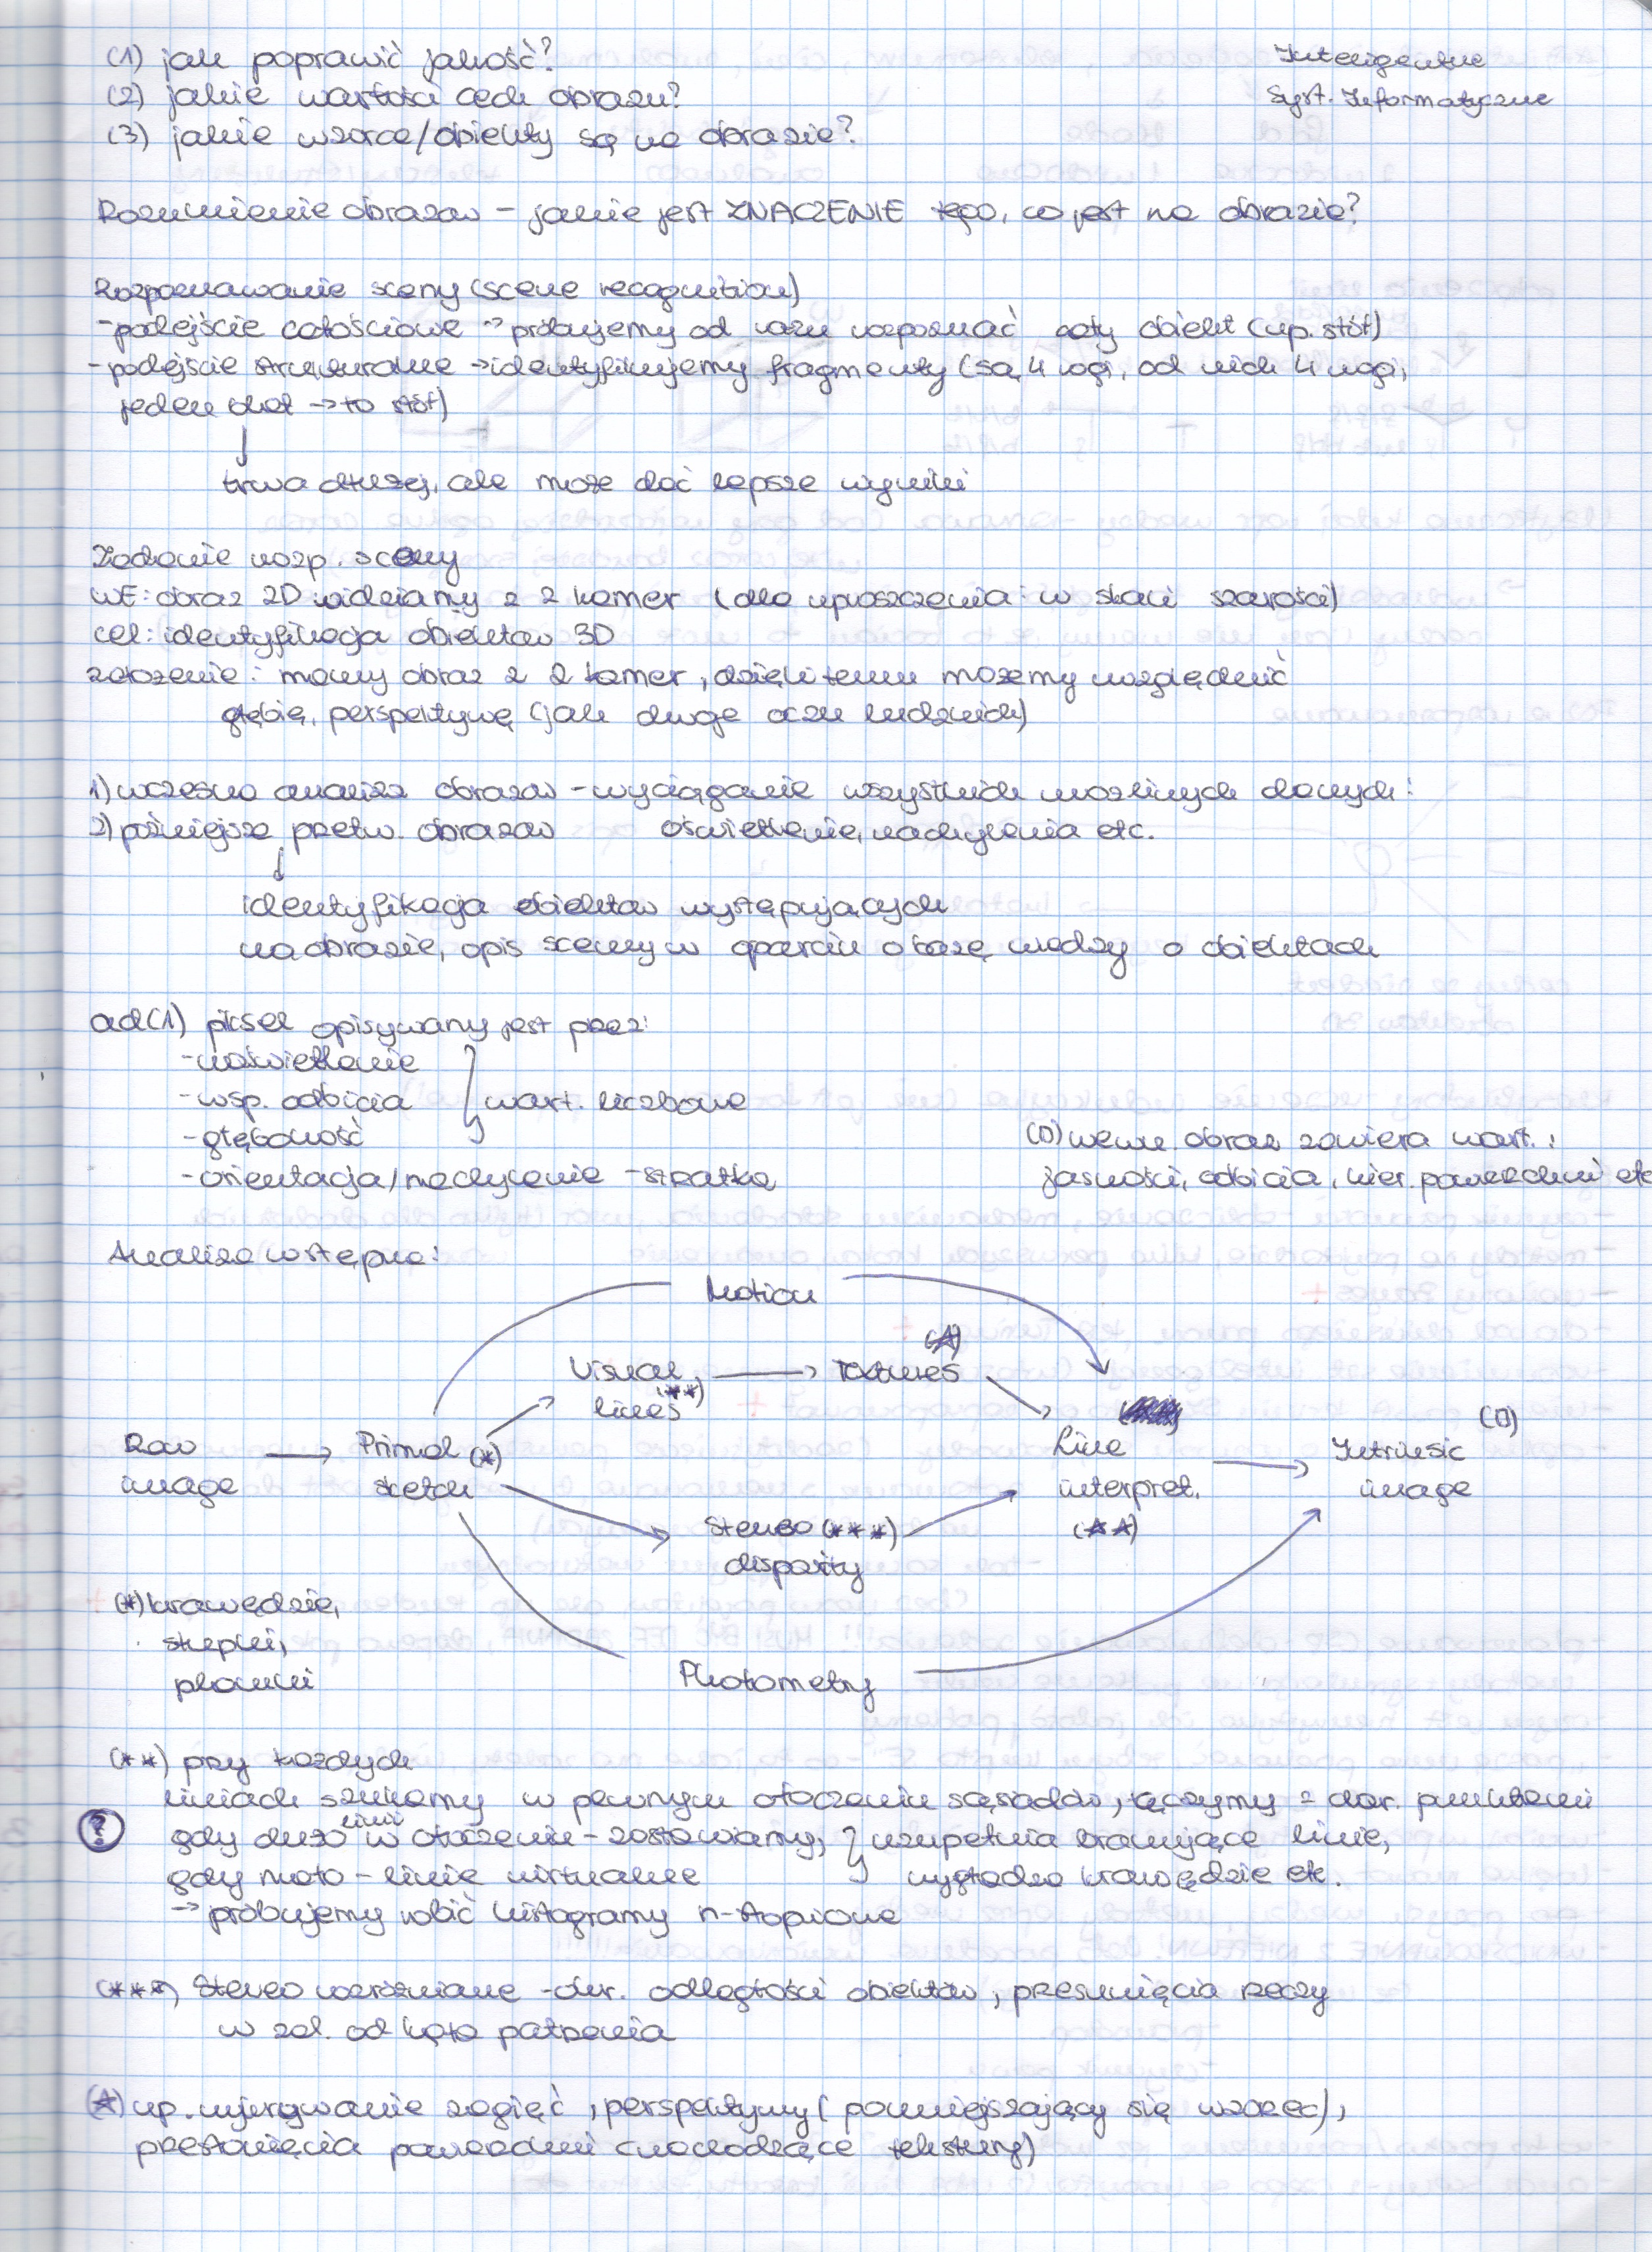 (1) jak poprawić jakość?
Inteligentne
(2) jakie wartości cech obrazu?
Syst. Informatyczne
(3) jakie wzorce/obiekty są na obrazie?
Rozumienie obrazów – jakie jest ZNACZENIE tego, co jest na obrazie?
Rozpoznawanie sceny (scene recognition)
- podejście całościowe -> próbujemy od razu rozpoznać cały obiekt (np. stół)
- podejście strukturalne -> identyfikujemy fragmenty (są 4 rogi, od nich 4 nogi,
jeden blat -> to stół)
↓
trwa dłużej, ale może dać lepsze wyniki
Zadanie rozp. sceny
WE: obraz 2D widziany z 2 kamer (dla uproszczenia: w skali szarości)
cel: identyfikacja obiektów 3D
założenie: mamy obraz z 2 kamer, dzięki temu możemy uwzględnić
głębię, perspektywę (jak dwoje oczu ludzkich)
1) wczesna analiza obrazów – wyciąganie wszystkich możliwych danych:
2) późniejsze przetw. obrazów oświetlenie, nachylenia etc.
↓
identyfikacja obiektów występujących
na obrazie, opis sceny w oparciu o bazę wiedzy o obiektach
ad(1) piksel opisywany jest przez:
- naświetlenie
- wsp. odbicia } wart. liczbowe
- głębokość
(□) wewn. obraz zawiera wart.:
- orientacja/nachylenie – strzałka
jasności, odbicia, kier. powierzchni etc
Analiza wstępna:
Motion
(☆)
Visual (**) -> Textures
lines
(□)
Raw -> Primal (*) Line -> Intrinsic
image sketch interpret. image
Stereo (***) (☆☆)
disparity
(*) krawędzie,
skupki,
plamki
Photometry
(**) przy każdych
liniach szukamy w pewnym otoczeniu sąsiadów, łączymy z char. punktami
(?) gdy dużo linii w otoczeniu – zostawiamy, } uzupełnia brakujące linie,
gdy mało – linie wirtualne wygładza krawędzie etc.
-> próbujemy robić histogramy n-stopniowe
(***) Stereo rozróżnianie – char. odległości obiektów, przesunięcia rzeczy
w zal. od kąta patrzenia
(☆) np. wykrywanie zagięć, perspektywy (pomniejszający się wzorzec),
przesłonięcia powierzchni (nachodzące tekstury)